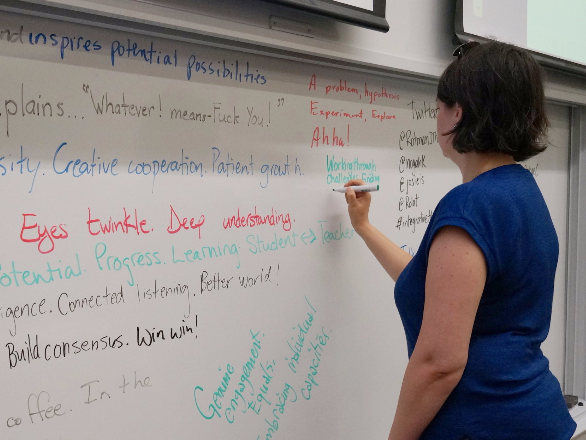 inspires potential possibilities
plains... "Whatever! means-Fuck You!"
sity. Creative cooperation. Patient growth.
Eyes twinkle. Deep understanding.
Potential. Progress. Learning. Student ↔ Teacher
igence. Connected listening. Better world!
Build consensus. Win win!
coffee. In the
Genuine
engagement.
Equals.
Embracing individual
capacities.
A problem, hypothesis
Experiment, Explore
Ahha!
Working through
challenges. Finding
Twitter